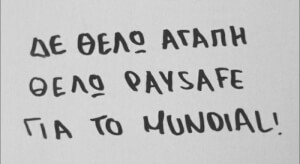 ΔΕ ΘΕΛΩ ΑΓΑΠΗ
ΘΕΛΩ PAYSAFE
ΓΙΑ ΤΟ MUNDIAL!